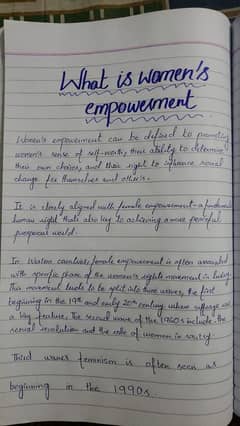 What is women's
empowerment
Women's empowerment can be defined to promoting
women's sense of self-worth, their ability to determine
their own choices, and their right to influence social
change for themselves and others.
It is closely aligned with female empowerment - a fundamental
human right that also key to achieving a more peaceful
prosperous world.
In Western countries, female empowerment is often associated
with specific phase of the women's rights movement in history.
This movement tends to be split into three waves, the first
beginning in the 19th and early 20th century where suffrage was
a key feature. The second wave of the 1960s include the
sexual revolution and the role of women in society.
Third waves feminism is often seen as
beginning in the 1990s.